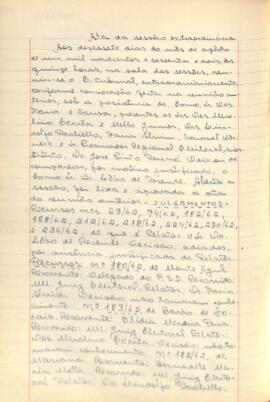 Ata da sessão extraordinária
Aos dezessete dias do mês de agôsto
de um mil novecentos e sessenta e dois, às
quinze horas, na sala das sessões, reuniu-
se o E. Tribunal, extraordinàriamente,
conforme convocação feita na reunião an-
terior, sob a presidência do Exmo. Sr. Des.
Faria e Sousa, presentes os Srs. Des. Me-
rolino Corrêa e Mello Júnior, Drs. Lin-
dolfo Paoliello, Faria
e o Procurador Regional Eleitoral, subs-
tituto, Dr. José Deixou de
comparecer, por motivo justificado, o
Exmo. Sr. Dr. Lôbo de Rezende. Aberta a
sessão, foi lida e aprovada a ata
da reunião anterior. JULGAMENTOS:
Recursos nºs 69/62, 74/62, 182/62,
188/62, 212/62, 218/62, 224/62, 230/62
e 236/62, de que é Relator o Sr. Dr.
Lôbo de Rezende. Decisão: adiados,
por ausência justificada do Relator.
Recursos: Nº 180/62, de Monte Azul.
Recorrente: Delegado do P.S.D. Recorrido:
MM. Juiz Eleitoral. Relator: Dr. Faria
Decisão: não tomaram conhe-
cimento. Nº 183/62, de Barão de Co-
cais. Recorrente: Moreira
Recorrido: MM. Juiz Eleitoral. Relator:
Des. Merolino Corrêa. Decisão: não to-
maram conhecimento. Nº 185/62, de
Mariana. Recorrente: Maria
Motta. Recorrido: MM. Juiz Eleito-
ral. Relator: Dr. Lindolfo Paoliello.